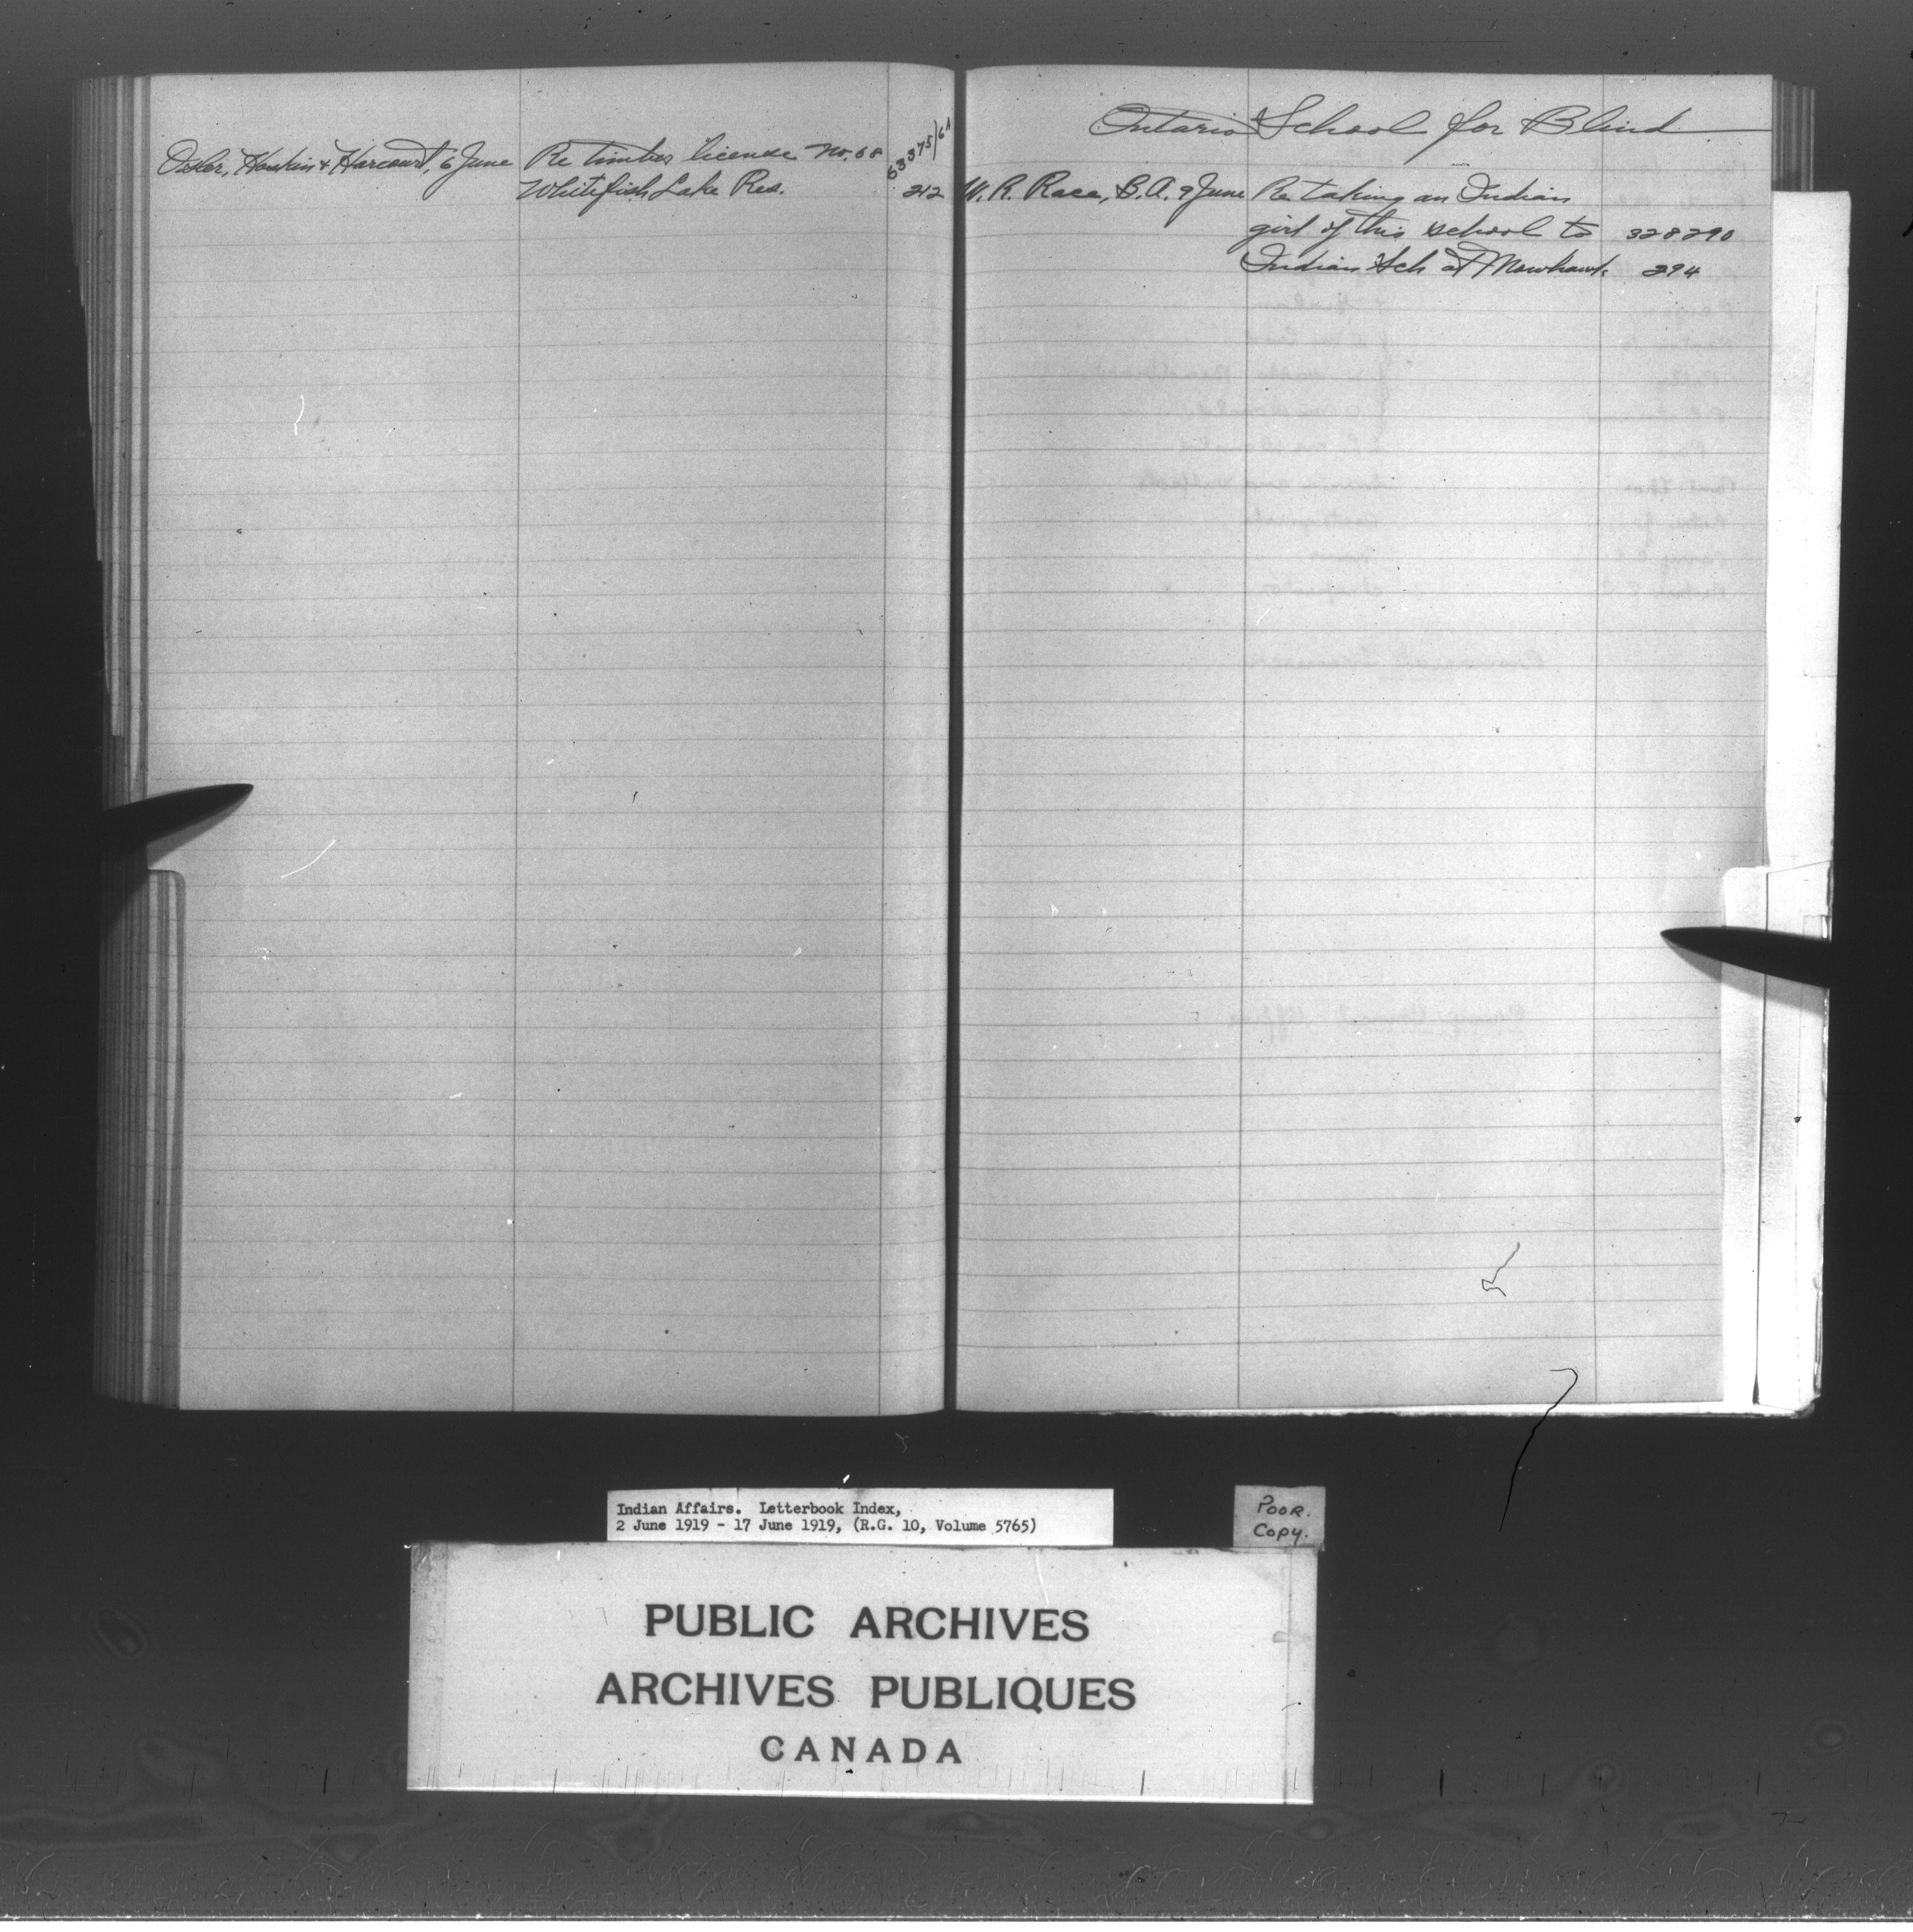 Osler, Hoskin & Harcourt, 6 June Re timber license No. 68 63375/61
Whitefish Lake Res. 212
Ontario School for Blind
W. R. Race, B.A. 9 June Re taking an Indian
girl of this school to 328290
Indian Sch at Mowhawk. 294
Indian Affairs. Letterbook Index,
2 June 1919 - 17 June 1919, (R.G. 10, Volume 5765)
POOR.
Copy.
PUBLIC ARCHIVES
ARCHIVES PUBLIQUES
CANADA